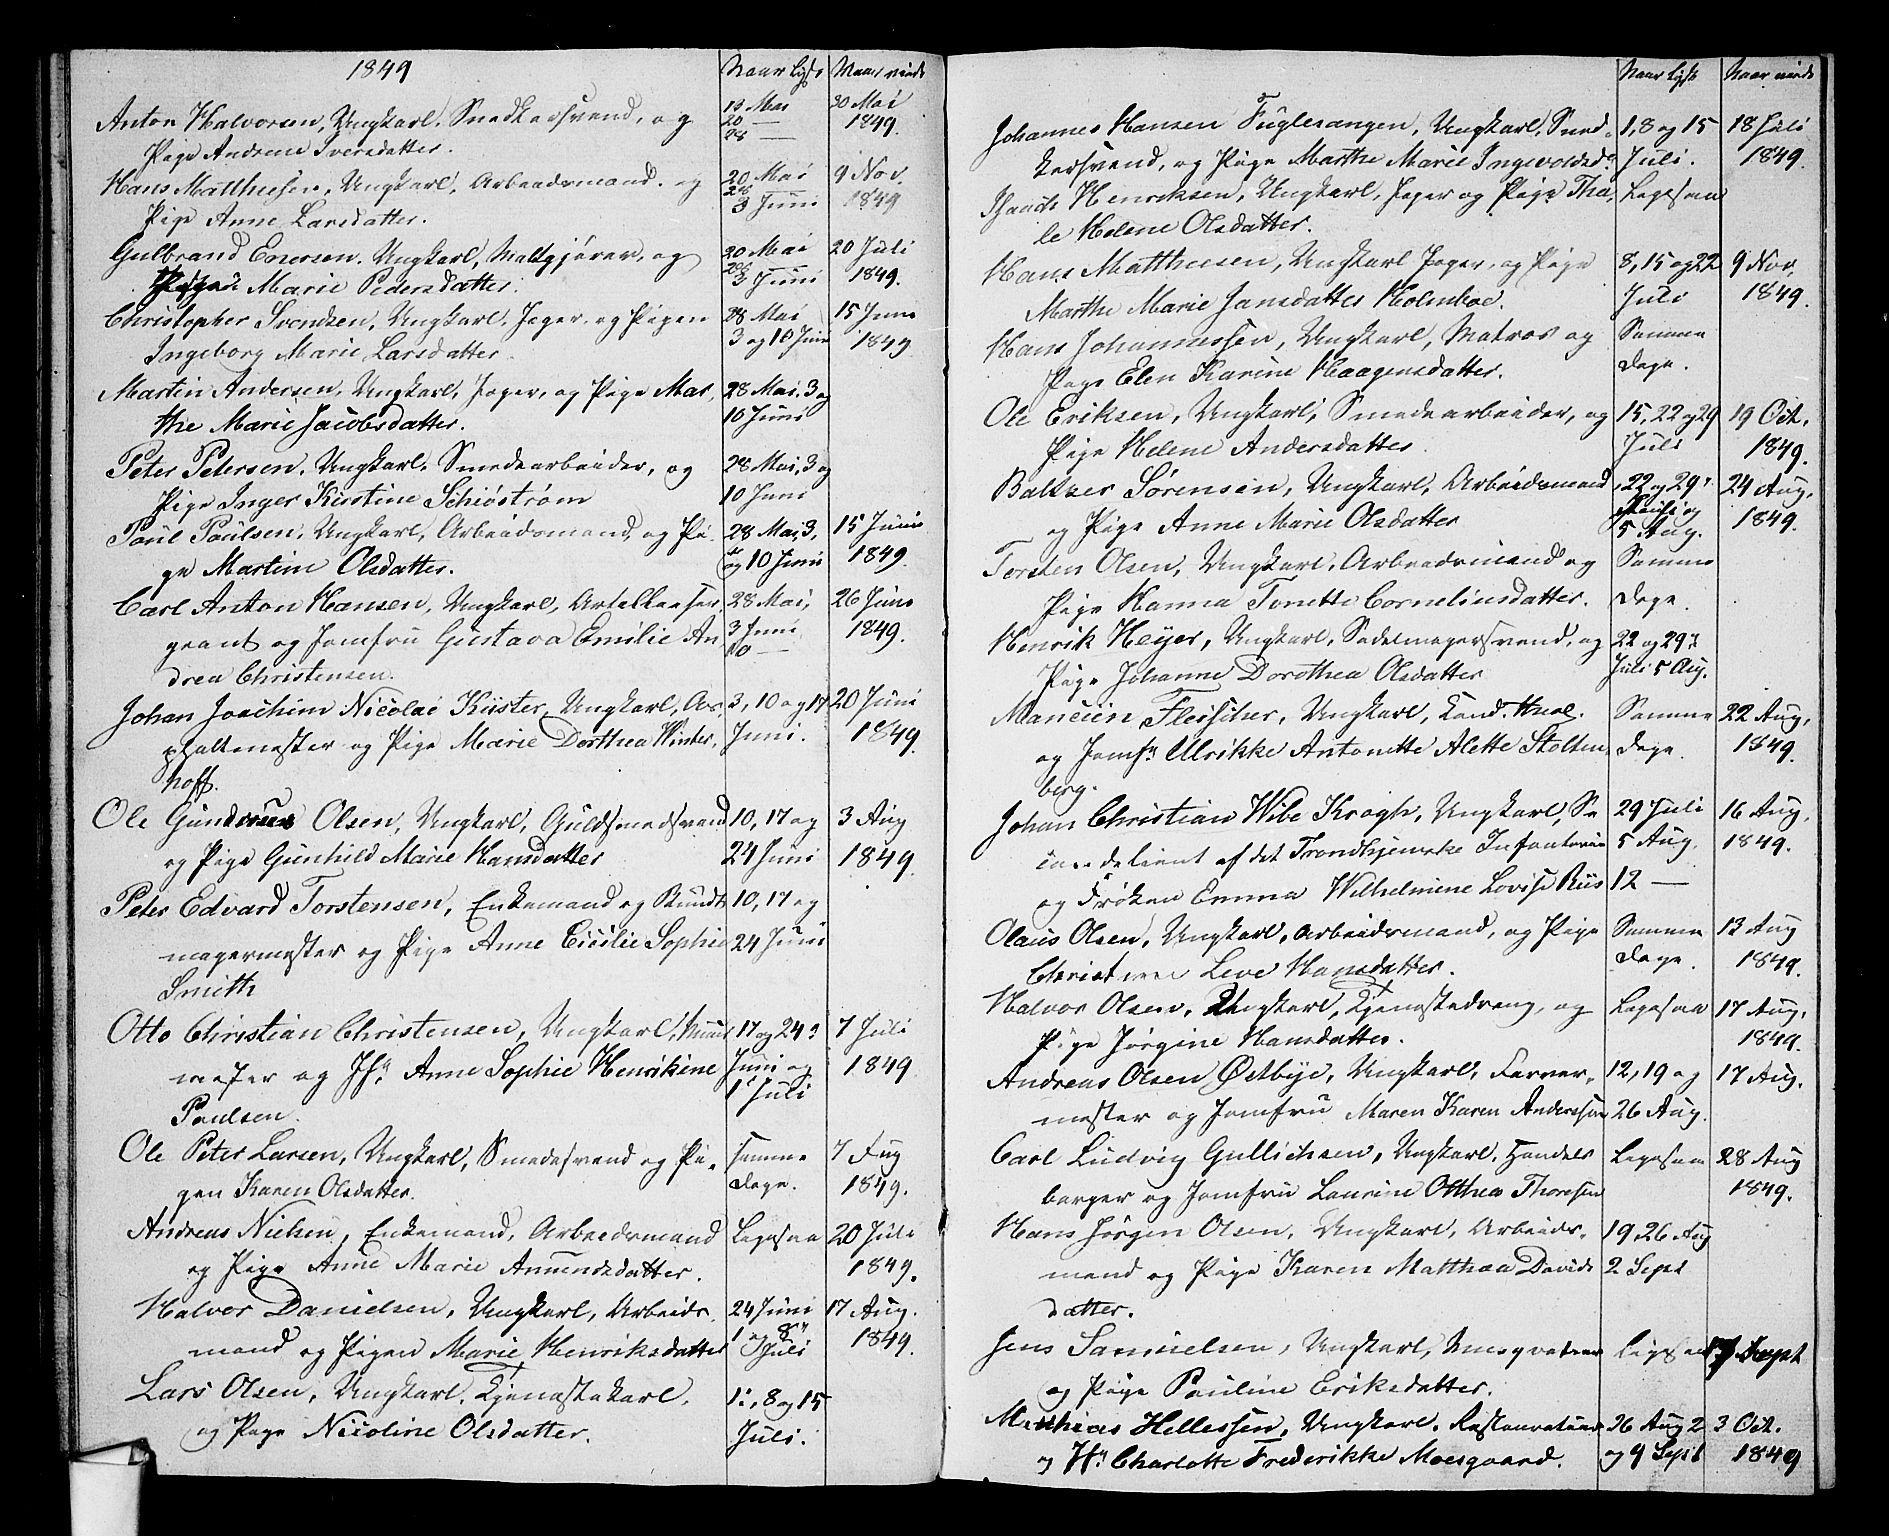 1849 Naar lyst Naar viede
Anton Halvorsen, Ungkarl, Snedkersvend, og 13 Mai 20 Mai
Pige Andrene Iversdatter. 20 — 28 — 1849.
Hans Matthiesen, Ungkarl, Arbeidsmand og 20 Mai 9 Nov.
Pige Anne Larsdatter. 28 3 Juni 1849
Gulbrand Enersen, Ungkarl, Maltgjører, og 20 Mai 20 Juli
Pige Marie Pedersdatter. 28 3 Juni 1849.
Christopher Svendsen, Ungkarl, Jæger og Pigen 28 Mai 15 Juni
Ingeborg Marie Larsdatter. 3 og 10 Juni 1849
Martin Andersen, Ungkarl, Jæger, og Pige Mar, 28 Mai, 3 og
the Marie Jacobsdatter. 10 Juni
Peter Petersen, Ungkarl, Smedearbeider, og 28 Mai, 3 og
Pige Inger Kirstine Schiöström 10 Juni
Paul Paulsen, Ungkarl, Arbeidsmand, og Pi- 28 Mai, 3, 15 Juni
ge Martine Olsdatter. og 10 Juni 1849.
Carl Anton Hansen, Ungkarl, 28 Mai, 26 Juni
og Jomfru Gustava Emilie An, 3 Juni 1849.
drea Christensen. 10 —
Johan Joachim Nicolai Küster, Ungkarl, As, 3, 10 og 17 20 Juni
phaltmester og Pige Marie Dorthea Winter, Juni. 1849.
hoff.
Ole Gunderus Olsen, Ungkarl, Guldsmedsvend 10, 17 og 3 Aug
og Pige Gunhild Marie Hansdatter 24 Juni 1849.
Peter Edvard Torstensen, Enkemand og Bundt 10, 17 og
magermester og Pige Anne Cicilie Sophie 24 Juni
Smith
Otto Christian Christensen, Ungkarl, Muur 17 og 24 7 Juli
mester og Jfr. Anne Sophie Henrikine Juni og 1849
Paulsen. 1 Juli
Ole Peter Larsen, Ungkarl, Smedesvend og Pi- samme 7 Aug
gen Karen Olsdatter. Dage. 1849.
Andreas Nielsen, Enkemand, Arbeidsmand Ligesaa 20 Juli
og Pige Anne Marie Amundsdatter. 1849.
Halvor Danielsen, Ungkarl, Arbeids 24 Juni 17 Aug.
mand og Pigen Marie Henriksdatter 1 og 8 Juli 1849.
Lars Olsen, Ungkarl, Tjenestekarl, 1, 8 og 15
og Pige Nicoline Olsdatter. Juli.
Naar lyst Naar viede
Johannes Hansen Fuglesangen, Ungkarl, Sned- 1, 8 og 15 18 Juli
kersvend, og Pige Marthe Marie Ingvoldsdr. Juli. 1849.
Henriksen, Ungkarl, Jæger og Pige Tha, Ligesaa
le Helene Olsdatter.
Hans Matthiesen, Ungkarl Jæger, og Pige 8, 15 og 22 9 Nov.
Marthe Marie Jansdatter Holmboe. Juli 1849.
Hans Johannessen, Ungkarl, Matros og Samme
Pige Elen Karine Haagensdatter. Dage.
Ole Eriksen, Ungkarl, Smedearbeider, og 15, 22 og 29 19 Oct.
Pige Helene Andersdatter. Juli 1849.
Baltzer Sørensen, Ungkarl, Arbeidsmand 22 og 29 24 Aug,
og Pige Anne Marie Olsdatter Juli og 5 Aug. 1849.
Torsten Olsen, Ungkarl, Arbeidsmand og Samme
Pige Hanna Tonette Corneliusdatter. Dage.
Henrik Heyer, Ungkarl, Sadelmagersvend, og 22 og 29
Pige Johanne Dorothea Olsdatter Juli 5 Aug.
Fleischer, Ungkarl, Kand. theol. Samme 22 Aug,
og Jomfr. Ulrikke Antonette Alette Stolten, Dage. 1849.
berg.
Johan Christian Wibe Kragh, Ungkarl, Se 29 Juli 16 Aug,
af det Trondhjemske Infanterie 5 Aug. 1849.
og Frøken Emma Wilhelmine Lovise Riis 12 —
Olaus Olsen, Ungkarl, Arbeidsmand, og Pige Samme 13 Aug
Christine Leve Hansdatter. Dage. 1849.
Halvor Olsen, Ungkarl, Tjenestedreng, og Ligesaa 17 Aug,
Pige Jørgine Hansdatter. 1849.
Andreas Olsen Østbye, Ungkarl, Farver- 12, 19 og 17 Aug.
mester og Jomfru Maren Karen Anderssen 26 Aug.
Carl Ludvig Gullichsen, Ungkarl, Handels Ligesaa 28 Aug
borger og Jomfru Laurine Otthea Thoresen 1849.
Hans Jørgen Olsen, Ungkarl, Arbeids- 19, 26 Aug
mand og Pige Karen Matthea Davids 2 Sept
datter.
Jens Samuelsen, Ungkarl, Ligesaa 17 Sept
og Pige Pauline Eriksdatter.
Mathias Hellessen, Ungkarl, Restaurateur 26 Aug 2 3 Oct.
og Charlotte Frederikke Moesgaard. og 9 Sept 1849